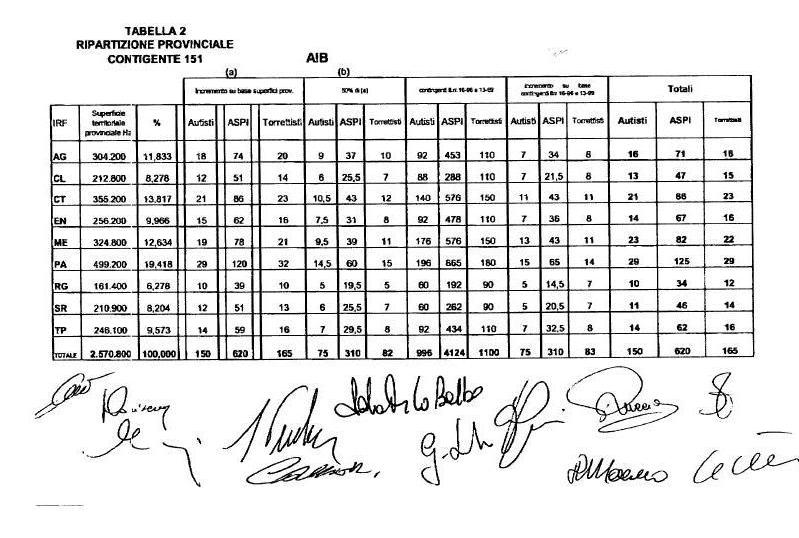 TABELLA 2
RIPARTIZIONE PROVINCIALE
CONTIGENTE 151 AIB
(a) (b)
Incremento su base superfici prov. 50% di (a) contingenti ll.rr 16-96 e 13-99 Incremento su base contingenti ll.rr 16-96 e 13-99 Totali
IRF Superficie territoriale provinciale Hz % Autisti ASPI Torrettisti Autisti ASPI Torrettisti Autisti ASPI Torrettisti Autisti ASPI Torrettisti Autisti ASPI Torrettisti
AG 304.200 11,833 18 74 20 9 37 10 92 453 110 7 34 8 16 71 18
CL 212.800 8,278 12 51 14 6 25,5 7 88 288 110 7 21,5 8 13 47 15
CT 355.200 13,817 21 86 23 10,5 43 12 140 576 150 11 43 11 21 86 23
EN 256.200 9,966 15 62 16 7,5 31 8 92 478 110 7 36 8 14 67 16
ME 324.800 12,634 19 78 21 9,5 39 11 176 576 150 13 43 11 23 82 22
PA 499.200 19,418 29 120 32 14,5 60 15 196 865 180 15 65 14 29 125 29
RG 161.400 6,278 10 39 10 5 19,5 5 60 192 90 5 14,5 7 10 34 12
SR 210.900 8,204 12 51 13 6 25,5 7 60 262 90 5 20,5 7 11 46 14
TP 246.100 9,573 14 59 16 7 29,5 8 92 434 110 7 32,5 8 14 62 16
TOTALE 2.570.800 100,000 150 620 165 75 310 82 996 4124 1100 75 310 83 150 620 165